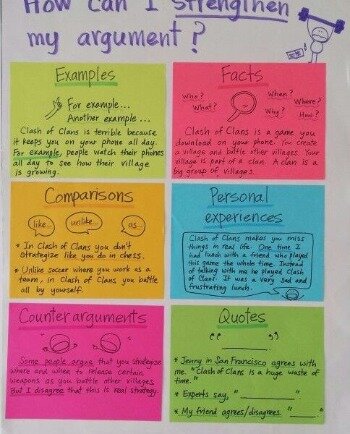 How can I strengthen
my argument?
Examples
For example...
Another example...
Clash of Clans is terrible because
it keeps you on your phone all day.
For example, people watch their phones
all day to see how their village
is growing.
Facts
Who?
What?
When?
Where?
Why?
How?
Clash of Clans is a game you
download on your phone. You create
a village and battle other villages. Your
village is part of a clan. A clan is a
big group of villages.
Comparisons
like
unlike
as
* In Clash of Clans you don't
strategize like you do in chess.
* Unlike soccer where you work as a
team, in Clash of Clans you battle
all by yourself.
Personal
experiences
Clash of Clans makes you miss
things in real life. One time I
had lunch with a friend who played
this game the whole time. Instead
of talking with me he played Clash
of Clans! It was a very sad and
frustrating lunch.
Counterarguments
Some people argue that you strategize
where and when to release certain
weapons as you battle other villages.
But I disagree that this is real strategy.
Quotes
" "
* Jenny in San Francisco agrees with
me. "Clash of Clans is a huge waste of
time."
* Experts say, "________"
* My friend agrees/disagrees "________"